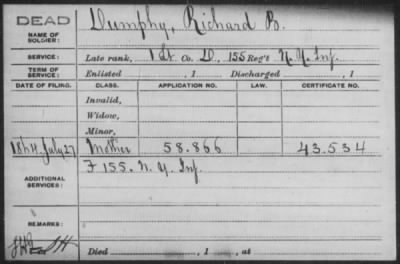 DEAD
NAME OF SOLDIER:
Dumphy, Richard B.
SERVICE:
Late rank, 1 Lt Co. D, 155 Reg't N.Y. Inf.
TERM OF SERVICE:
Enlisted , 1 Discharged , 1
DATE OF FILING. CLASS. APPLICATION NO. LAW. CERTIFICATE NO.
Invalid,
Widow,
Minor,
1864 July 27 Mother 58.866 43.534
ADDITIONAL SERVICES:
F 155. N.Y. Inf.
REMARKS:
Died , 1 , at